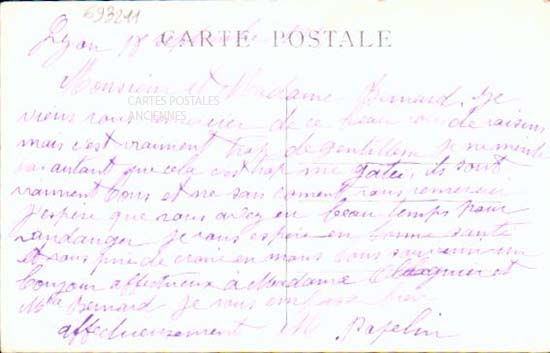 693211
CARTE POSTALE
Lyon 18 septembre
Monsieur et Madame Bernard, Je
CARTES POSTALES
ANCIENNES
viens vous remercier de ce beau de raisins
mais c'est vraiment trop de gentillesse je ne merite
pas autant que cela c'est trop me gatée, ils sont
vraiment bons et ne sais coment vous remercier
J'espère que vous avez eu beau temps pour
vandanger je vous espère en bonne santé
et vous prie de croire en mons bons souvenir un
bonjour affectueux à Madame et
Mlle Bernard je vous embrasse bien
affectueusement M. Papelin